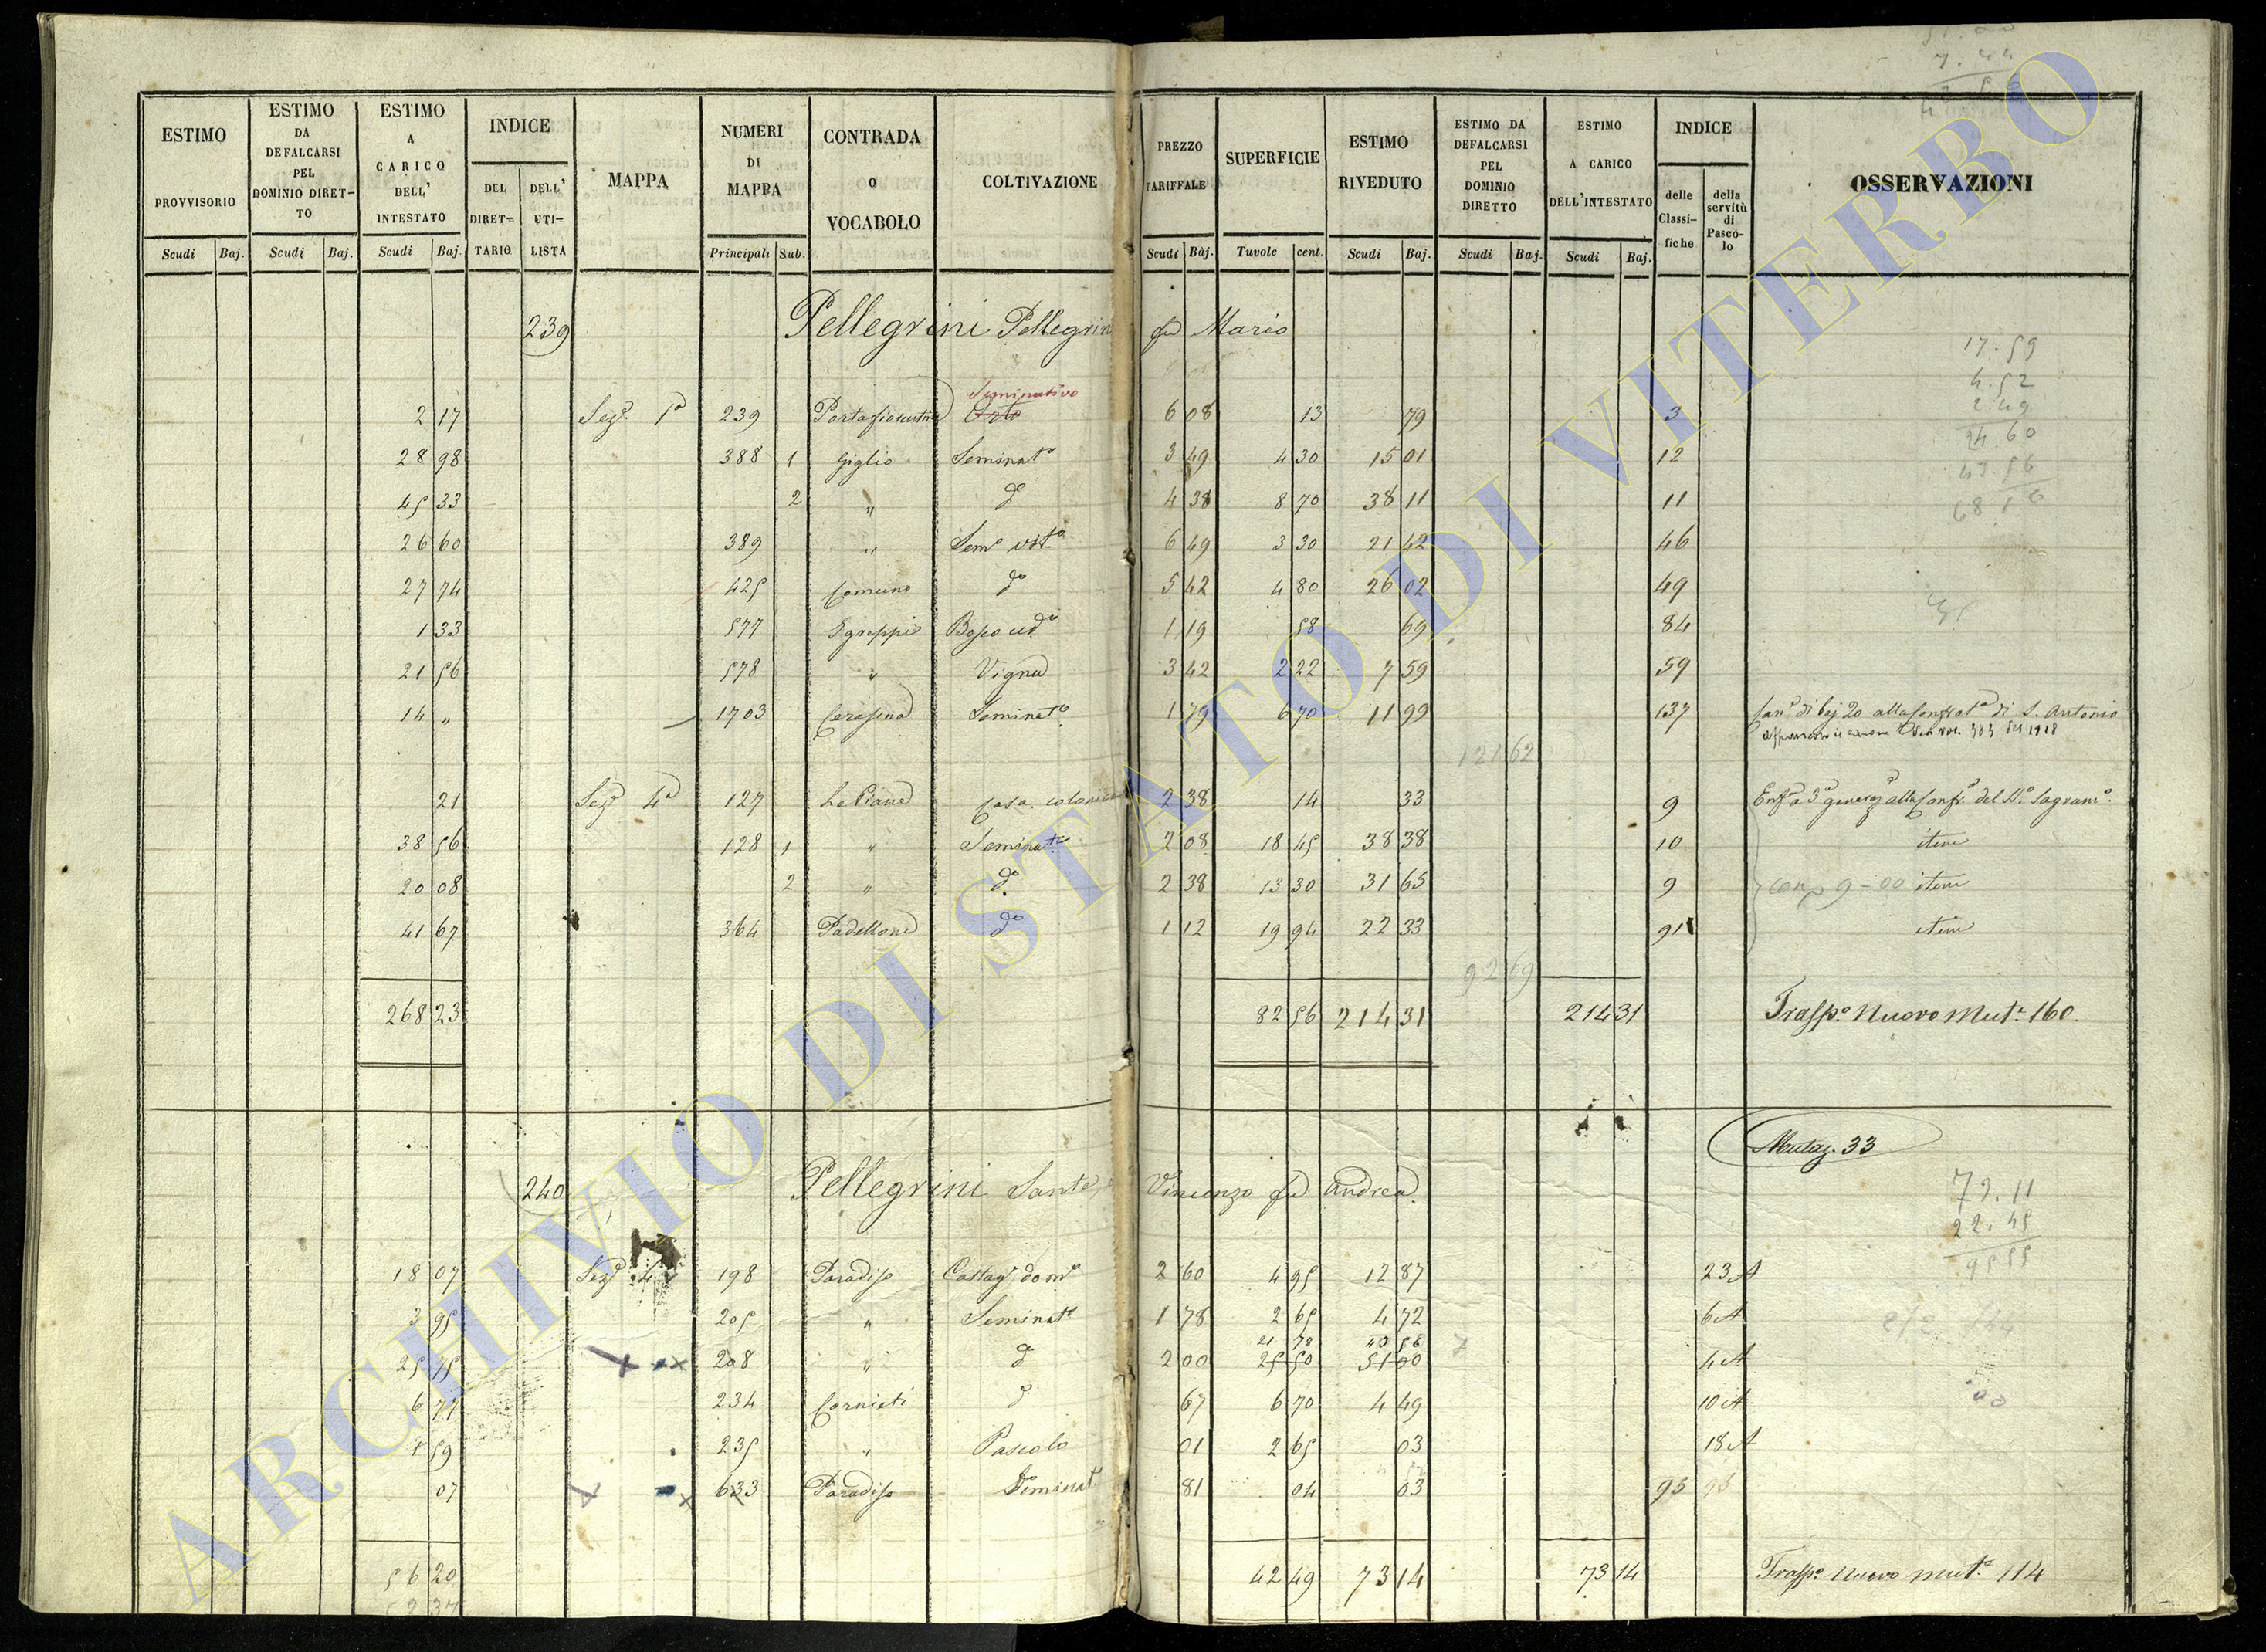 ESTIMO PROVVISORIO Scudi Baj.
ESTIMO DA DEFALCARSI PEL DOMINIO DIRETTO Scudi Baj.
ESTIMO A CARICO DELL' INTESTATO Scudi Baj.
INDICE DEL DIRETTARIO DELL' UTILISTA
MAPPA
NUMERI DI MAPPA Principali Sub.
CONTRADA O VOCABOLO
COLTIVAZIONE
PREZZO TARIFFALE Scudi Baj.
SUPERFICIE Tavole cent.
ESTIMO RIVEDUTO Scudi Baj.
ESTIMO DA DEFALCARSI PEL DOMINIO DIRETTO Scudi Baj.
ESTIMO A CARICO DELL'INTESTATO Scudi Baj.
INDICE delle Classifiche della servitù di Pascolo
OSSERVAZIONI
239 Pellegrini Pellegrin fu Mario
Seminativo
2 17 Sezе 1a 239 Orto 6 08 13 79 3
28 98 388 1 Giglio Seminato 3 49 4 30 15 01 12
45 33 2 " do 4 38 8 70 38 11 11
26 60 389 " Semo vito 6 49 3 30 21 42 46
27 74 425 Comune do 5 42 4 80 26 02 49
1 33 577 Sgrappi 1 19 58 69 84
21 56 578 " Vigna 3 42 2 22 7 59 59
14 " 1703 Seminato 1 79 6 70 11 99 137 di baj 20 alla di S. Antonio
1918
121 62
21 Seze 4a 127 Le Piane casa colonica 2 38 14 33 9 del SSo Sagramo.
38 56 128 1 " Seminato 2 08 18 45 38 38 10 item
20 08 2 " do 2 38 13 30 31 65 9 9-00 item
41 67 364 Padellone do 1 12 19 94 22 33 91 item
92 69
268 23 82 56 214 31 214 31 Trasspo. Nuovo Muta. 160.
Mutaz. 33
240 Pellegrini Sante, e Vincenzo fu Andrea.
18 07 Seze 4 198 Paradiso Castago domo 2 60 4 95 12 87 23 A
3 95 205 " Seminato 1 78 2 65 4 72 6 A
21 78 43 56
25 75 208 " do 2 00 25 50 51 00 4 A
6 77 234 Cornieti do 67 6 70 4 49 10 A
59 235 " Pascolo 01 2 65 03 18 A
07 633 Paradiso Seminat. 81 04 03 95 95
56 20 42 49 73 14 73 14 Trasspo. Nuovo Muta. 114
52 37
17.59
4.52
2.49
24.60
43.56
68.16
79.11
22.45
95 55
ARCHIVIO DI STATO DI VITERBO